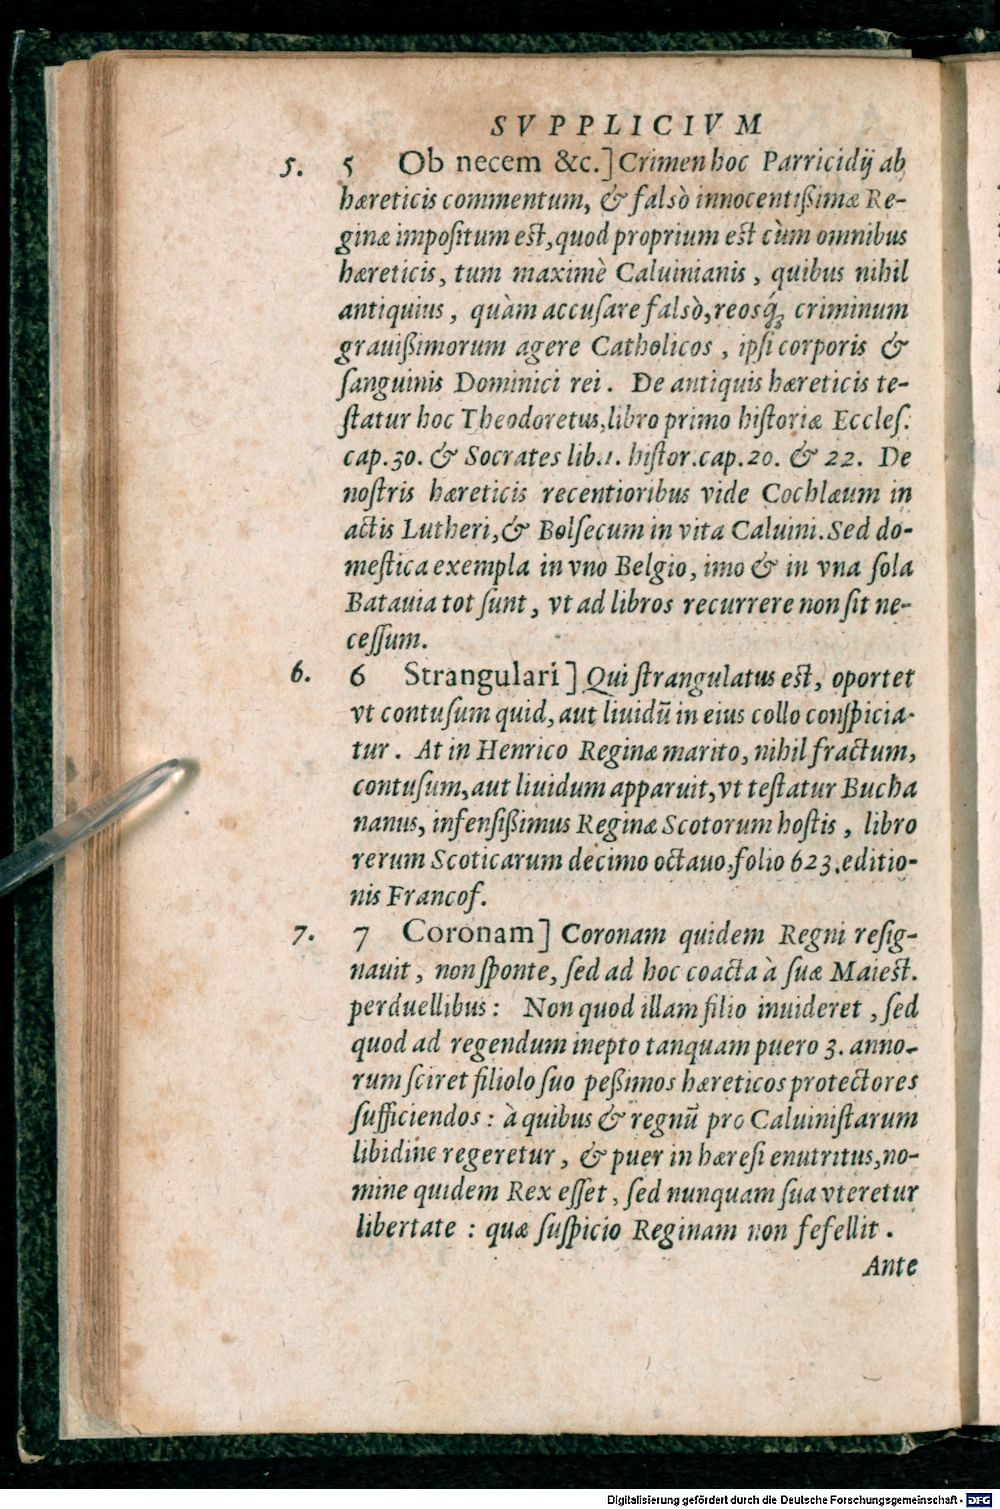 SVPPLICIVM
5. 5 Ob necem &c.] Crimen hoc Parricidij ab
hæreticis commentum, & falsò innocentißimæ Re-
ginæ impoſitum est, quod proprium est cùm omnibus
hæreticis, tum maximè Caluinianis, quibus nihil
antiquius, quàm accuſare falsò, reosq́ꝫ criminum
grauißimorum agere Catholicos, ipſi corporis &
ſanguinis Dominici rei. De antiquis hæreticis te-
ſtatur hoc Theodoretus, libro primo hiſtoriæ Eccleſ.
cap. 30. & Socrates lib. 1. hiſtor. cap. 20. & 22. De
noſtris hæreticis recentioribus vide Cochlæum in
actis Lutheri, & Bolſecum in vita Caluini. Sed do-
meſtica exempla in vno Belgio, imo & in vna ſola
Batauia tot ſunt, vt ad libros recurrere non ſit ne-
ceſſum.
6. 6 Strangulari] Qui ſtrangulatus est, oportet
vt contuſum quid, aut liuidū in eius collo conſpicia-
tur. At in Henrico Reginæ marito, nihil fractum,
contuſum, aut liuidum apparuit, vt teſtatur Bucha
nanus, infenſißimus Reginæ Scotorum hoſtis, libro
rerum Scoticarum decimo octauo, folio 623. editio-
nis Francof.
7. 7 Coronam] Coronam quidem Regni reſig-
nauit, non ſponte, ſed ad hoc coacta à ſuæ Maiest.
perduellibus: Non quod illam filio inuideret, ſed
quod ad regendum inepto tanquam puero 3. anno-
rum ſciret filiolo ſuo peßimos hæreticos protectores
ſufficiendos: à quibus & regnū pro Caluiniſtarum
libidine regeretur, & puer in hæreſi enutritus, no-
mine quidem Rex eſſet, ſed nunquam ſua vteretur
libertate: quæ ſuſpicio Reginam non fefellit.
Ante
Digitalisierung gefördert durch die Deutsche Forschungsgemeinschaft - DFG